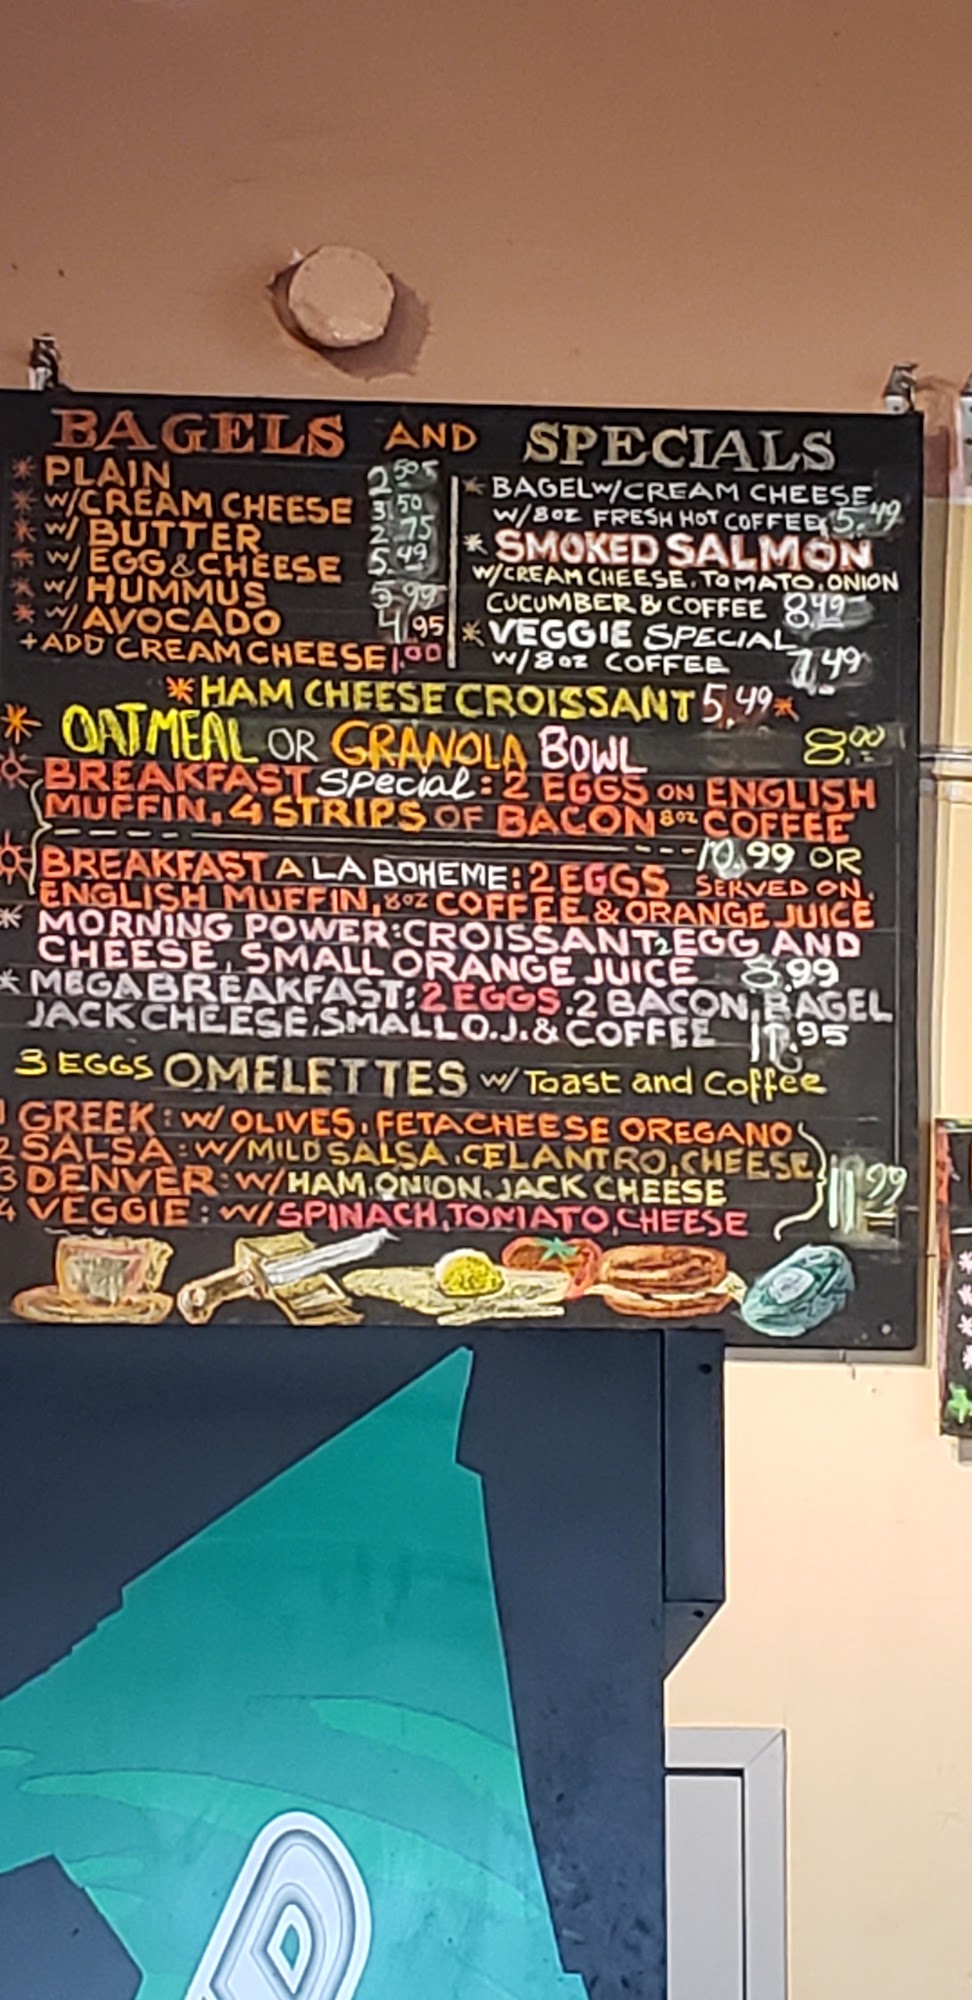 BAGELS AND SPECIALS
* PLAIN
* W/CREAM CHEESE 3.50
* W/ BUTTER 2.75
* W/ EGG & CHEESE 5.49
* W/ HUMMUS 3.99
* W/ AVOCADO 4.95
+ADD CREAM CHEESE 1.00
* BAGEL W/CREAM CHEESE
W/8OZ FRESH HOT COFFEE 5.49
* SMOKED SALMON
W/CREAM CHEESE, TOMATO, ONION
CUCUMBER & COFFEE 8.49
* VEGGIE SPECIAL
W/8OZ COFFEE 7.49
* HAM CHEESE CROISSANT 5.49 *
* OATMEAL OR GRANOLA BOWL 8.00
BREAKFAST Special: 2 EGGS ON ENGLISH
MUFFIN, 4 STRIPS OF BACON 8OZ COFFEE
10.99 OR
BREAKFAST A LA BOHEME: 2 EGGS SERVED ON
ENGLISH MUFFIN, 8OZ COFFEE & ORANGE JUICE
* MORNING POWER: CROISSANT, 2 EGG AND
CHEESE, SMALL ORANGE JUICE 8.99
* MEGA BREAKFAST: 2 EGGS, 2 BACON, BAGEL
JACK CHEESE, SMALL O.J. & COFFEE
3 EGGS OMELETTES W/ Toast and Coffee
1 GREEK: W/ OLIVES, FETA CHEESE OREGANO
2 SALSA: W/MILD SALSA, CELANTRO, CHEESE
3 DENVER: W/ HAM, ONION, JACK CHEESE 11.99
4 VEGGIE: W/ SPINACH, TOMATO, CHEESE